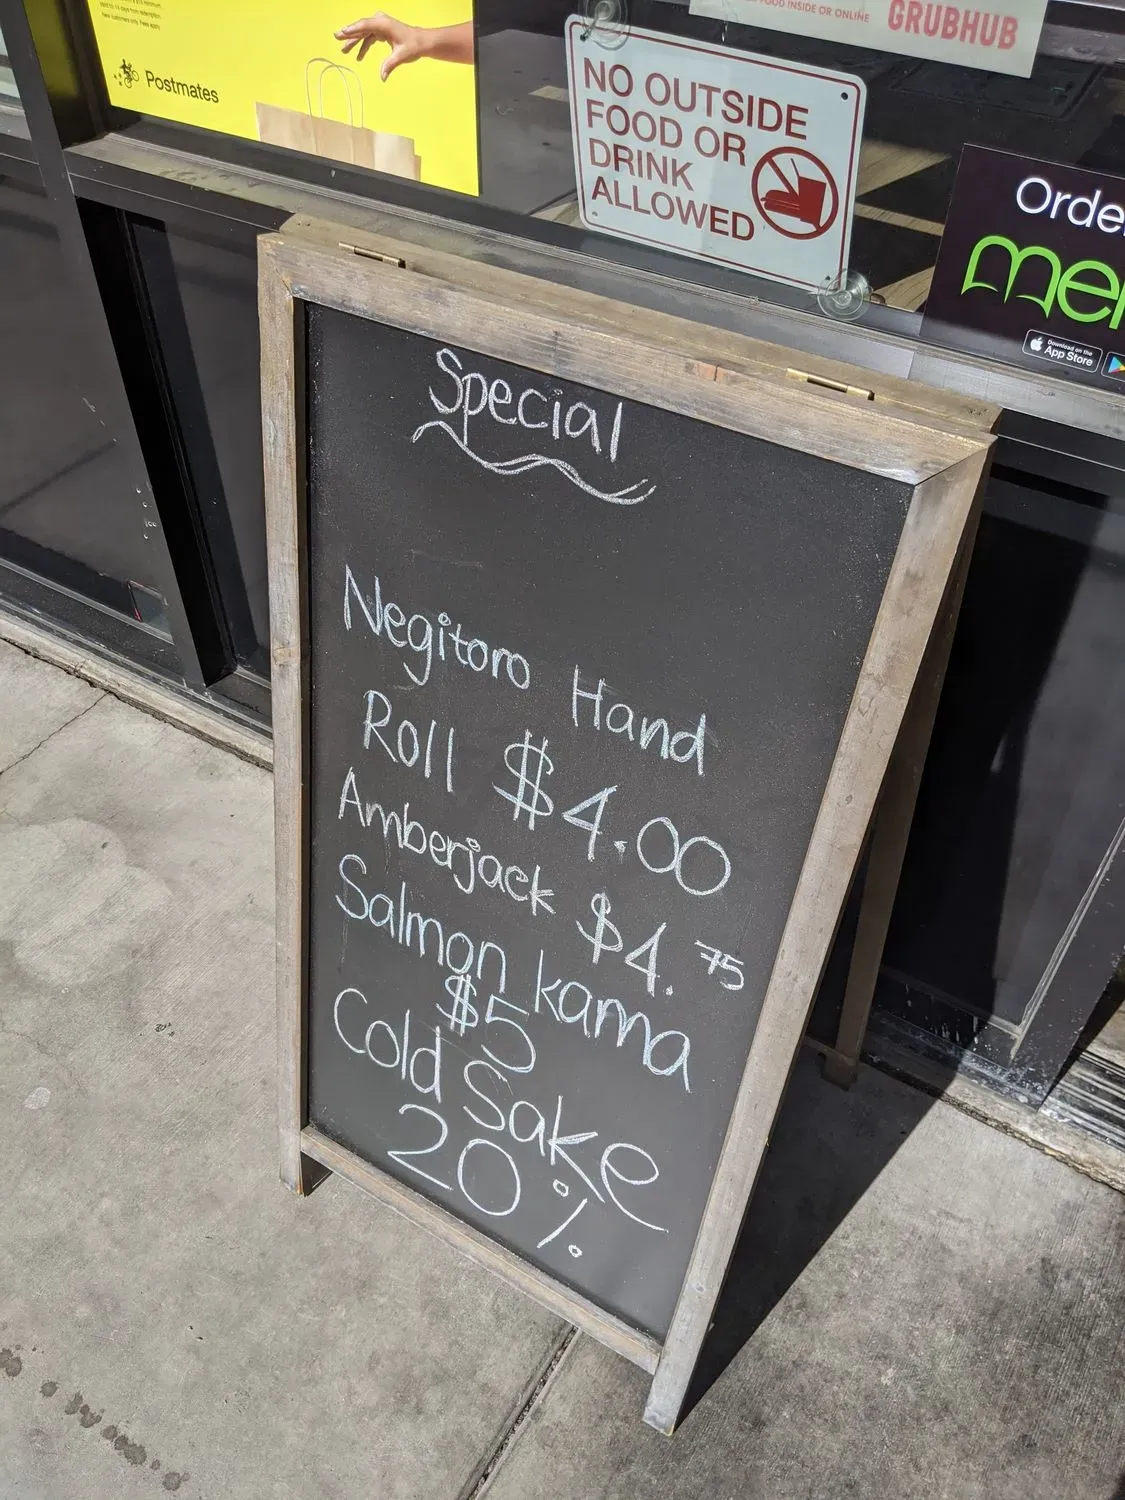 Postmates
FOOD INSIDE OR ONLINE
GRUBHUB
NO OUTSIDE
FOOD OR
DRINK
ALLOWED
Download on the
App Store
Special
Negitoro Hand
Roll $4.00
Amberjack $4.75
Salmon kama
$5
Cold Sake
20%